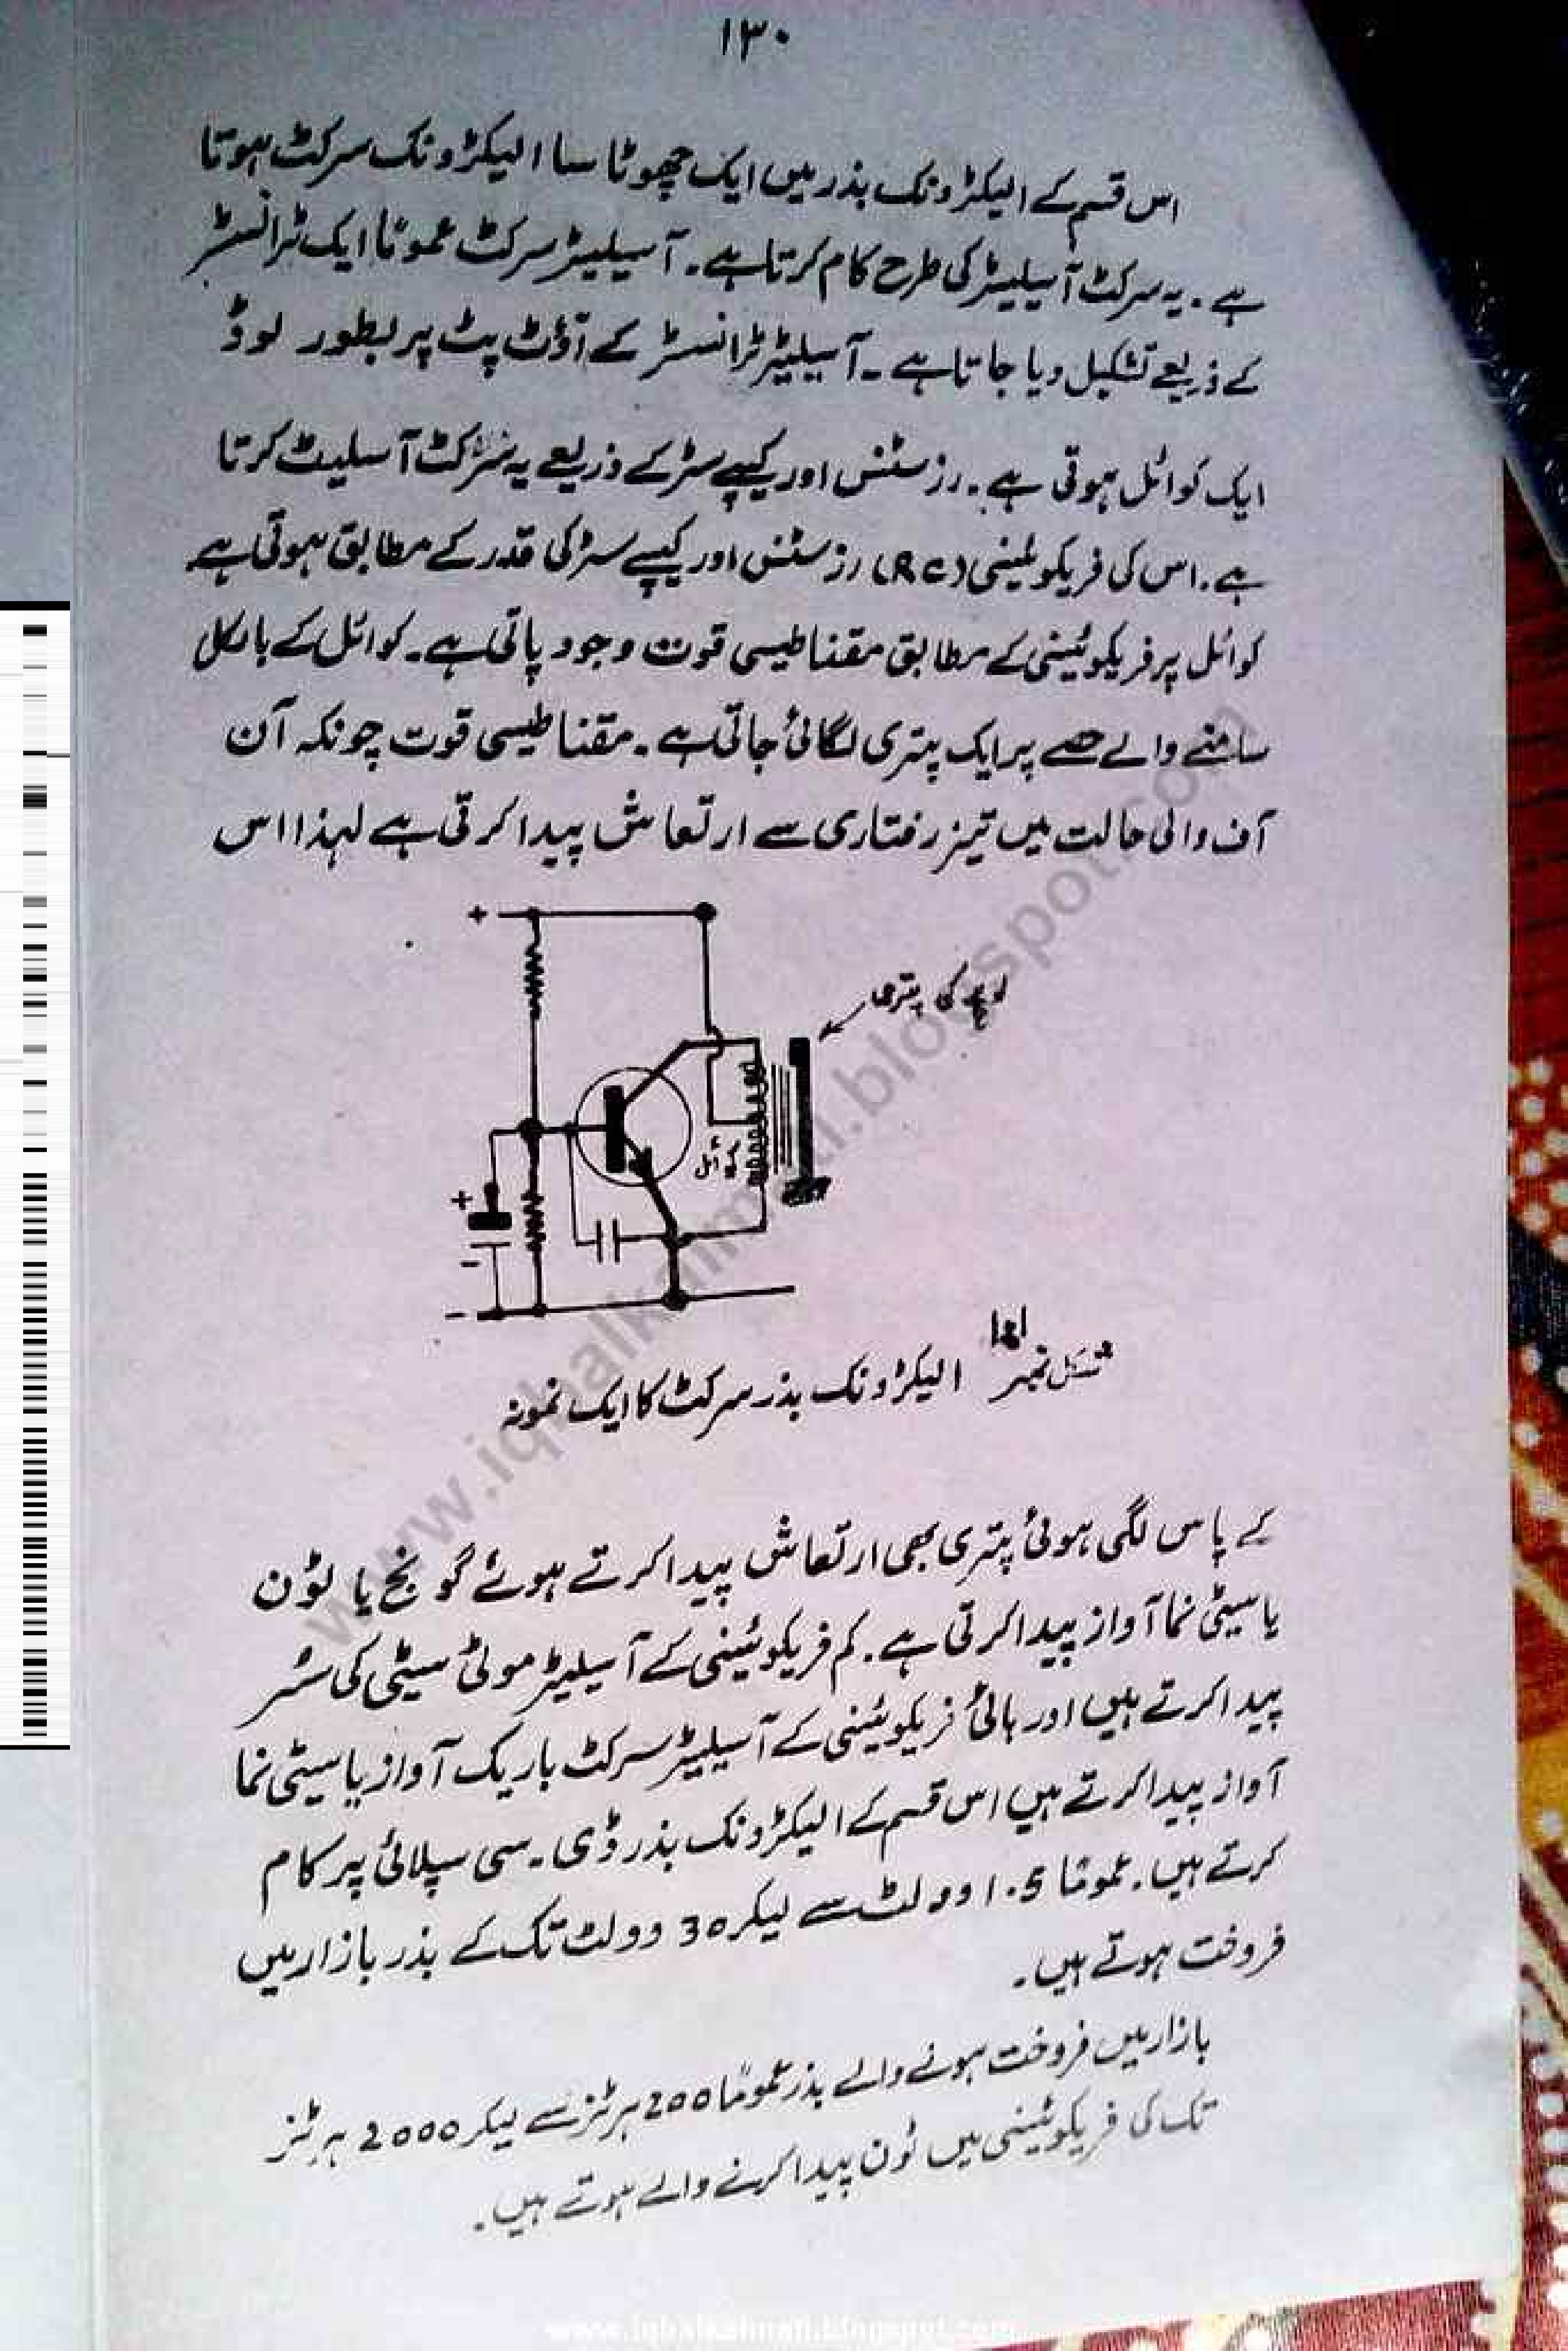 ۱۳۰
اس قسم کے الیکڑونک بذر میں ایک چھوٹا سا الیکڑونک سرکٹ ہوتا
ہے۔ یہ سرکٹ آسیلیٹر کی طرح کام کرتا ہے۔ آسیلیٹر سرکٹ عموماً ایک ٹرانسسٹر
کے ذریعے تشکیل دیا جاتا ہے۔ آسیلیٹر ٹرانسسٹر کے آؤٹ پٹ پر بطور لوڈ
ایک کوائل ہوتی ہے۔ رزسٹنس اور کیپے سٹر کے ذریعے یہ سرکٹ آسلیٹ کرتا
ہے۔ اس کی فریکوئینسی (RC) رزسٹنس اور کیپے سٹر کی قدر کے مطابق ہوتی ہے
کوائل پر فریکوئینسی کے مطابق مقناطیسی قوت وجود پاتی ہے۔ کوائل کے بالکل
سامنے والے حصے پر ایک پتری لگائی جاتی ہے۔ مقناطیسی قوت چونکہ آن
آف والی حالت میں تیز رفتاری سے ارتعاش پیدا کرتی ہے لہذا اس
+
لوہے کی پتری
کوائل
+
-
-
شکل نمبر ۱۷۱ الیکڑونک بذر سرکٹ کا ایک نمونہ
کے پاس لگی ہوئی پتری بھی ارتعاش پیدا کرتے ہوئے گونج یا ٹون
یا سیٹی نما آواز پیدا کرتی ہے۔ کم فریکوئینسی کے آسیلیٹر موٹی سیٹی کی سُر
پیدا کرتے ہیں اور ہائی فریکوئینسی کے آسیلیٹر سرکٹ باریک آواز یا سیٹی نما
آواز پیدا کرتے ہیں اس قسم کے الیکڑونک بذر ڈی۔سی سپلائی پر کام
کرتے ہیں۔ عموماً 1.5 وولٹ سے لیکر 30 وولٹ تک کے بذر بازار میں
فروخت ہوتے ہیں۔
بازار میں فروخت ہونے والے بذر عموماً 200 ہرٹز سے لیکر 2000 ہرٹز
تک کی فریکوئینسی میں ٹون پیدا کرنے والے ہوتے ہیں۔
www.iqbalkalmati.blogspot.com
www.iqbalkalmati.blogspot.com